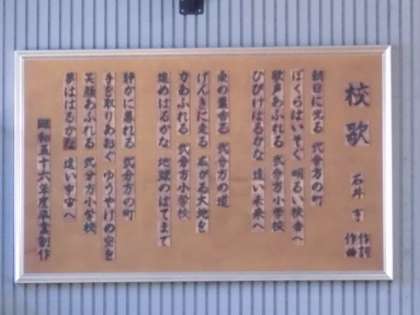 校歌
石井 亨 作詞 作曲
朝日に光る 弐分方の町
ぼくらはいそぐ 明るい校舎へ
歌声あふれる 弐分方小学校
ひびけはるかな 遠い未来へ
の薫る 弐分方の道
げんきに走る 広がる大地を
力あふれる 弐分方小学校
進めはるかな 地球のはてまで
静かに暮れる 弐分方の町
手を取りあおぐ ゆうやけの空を
笑顔あふれる 弐分方小学校
夢ははるかな 遠い宇宙へ
昭和五十六年度卒業制作